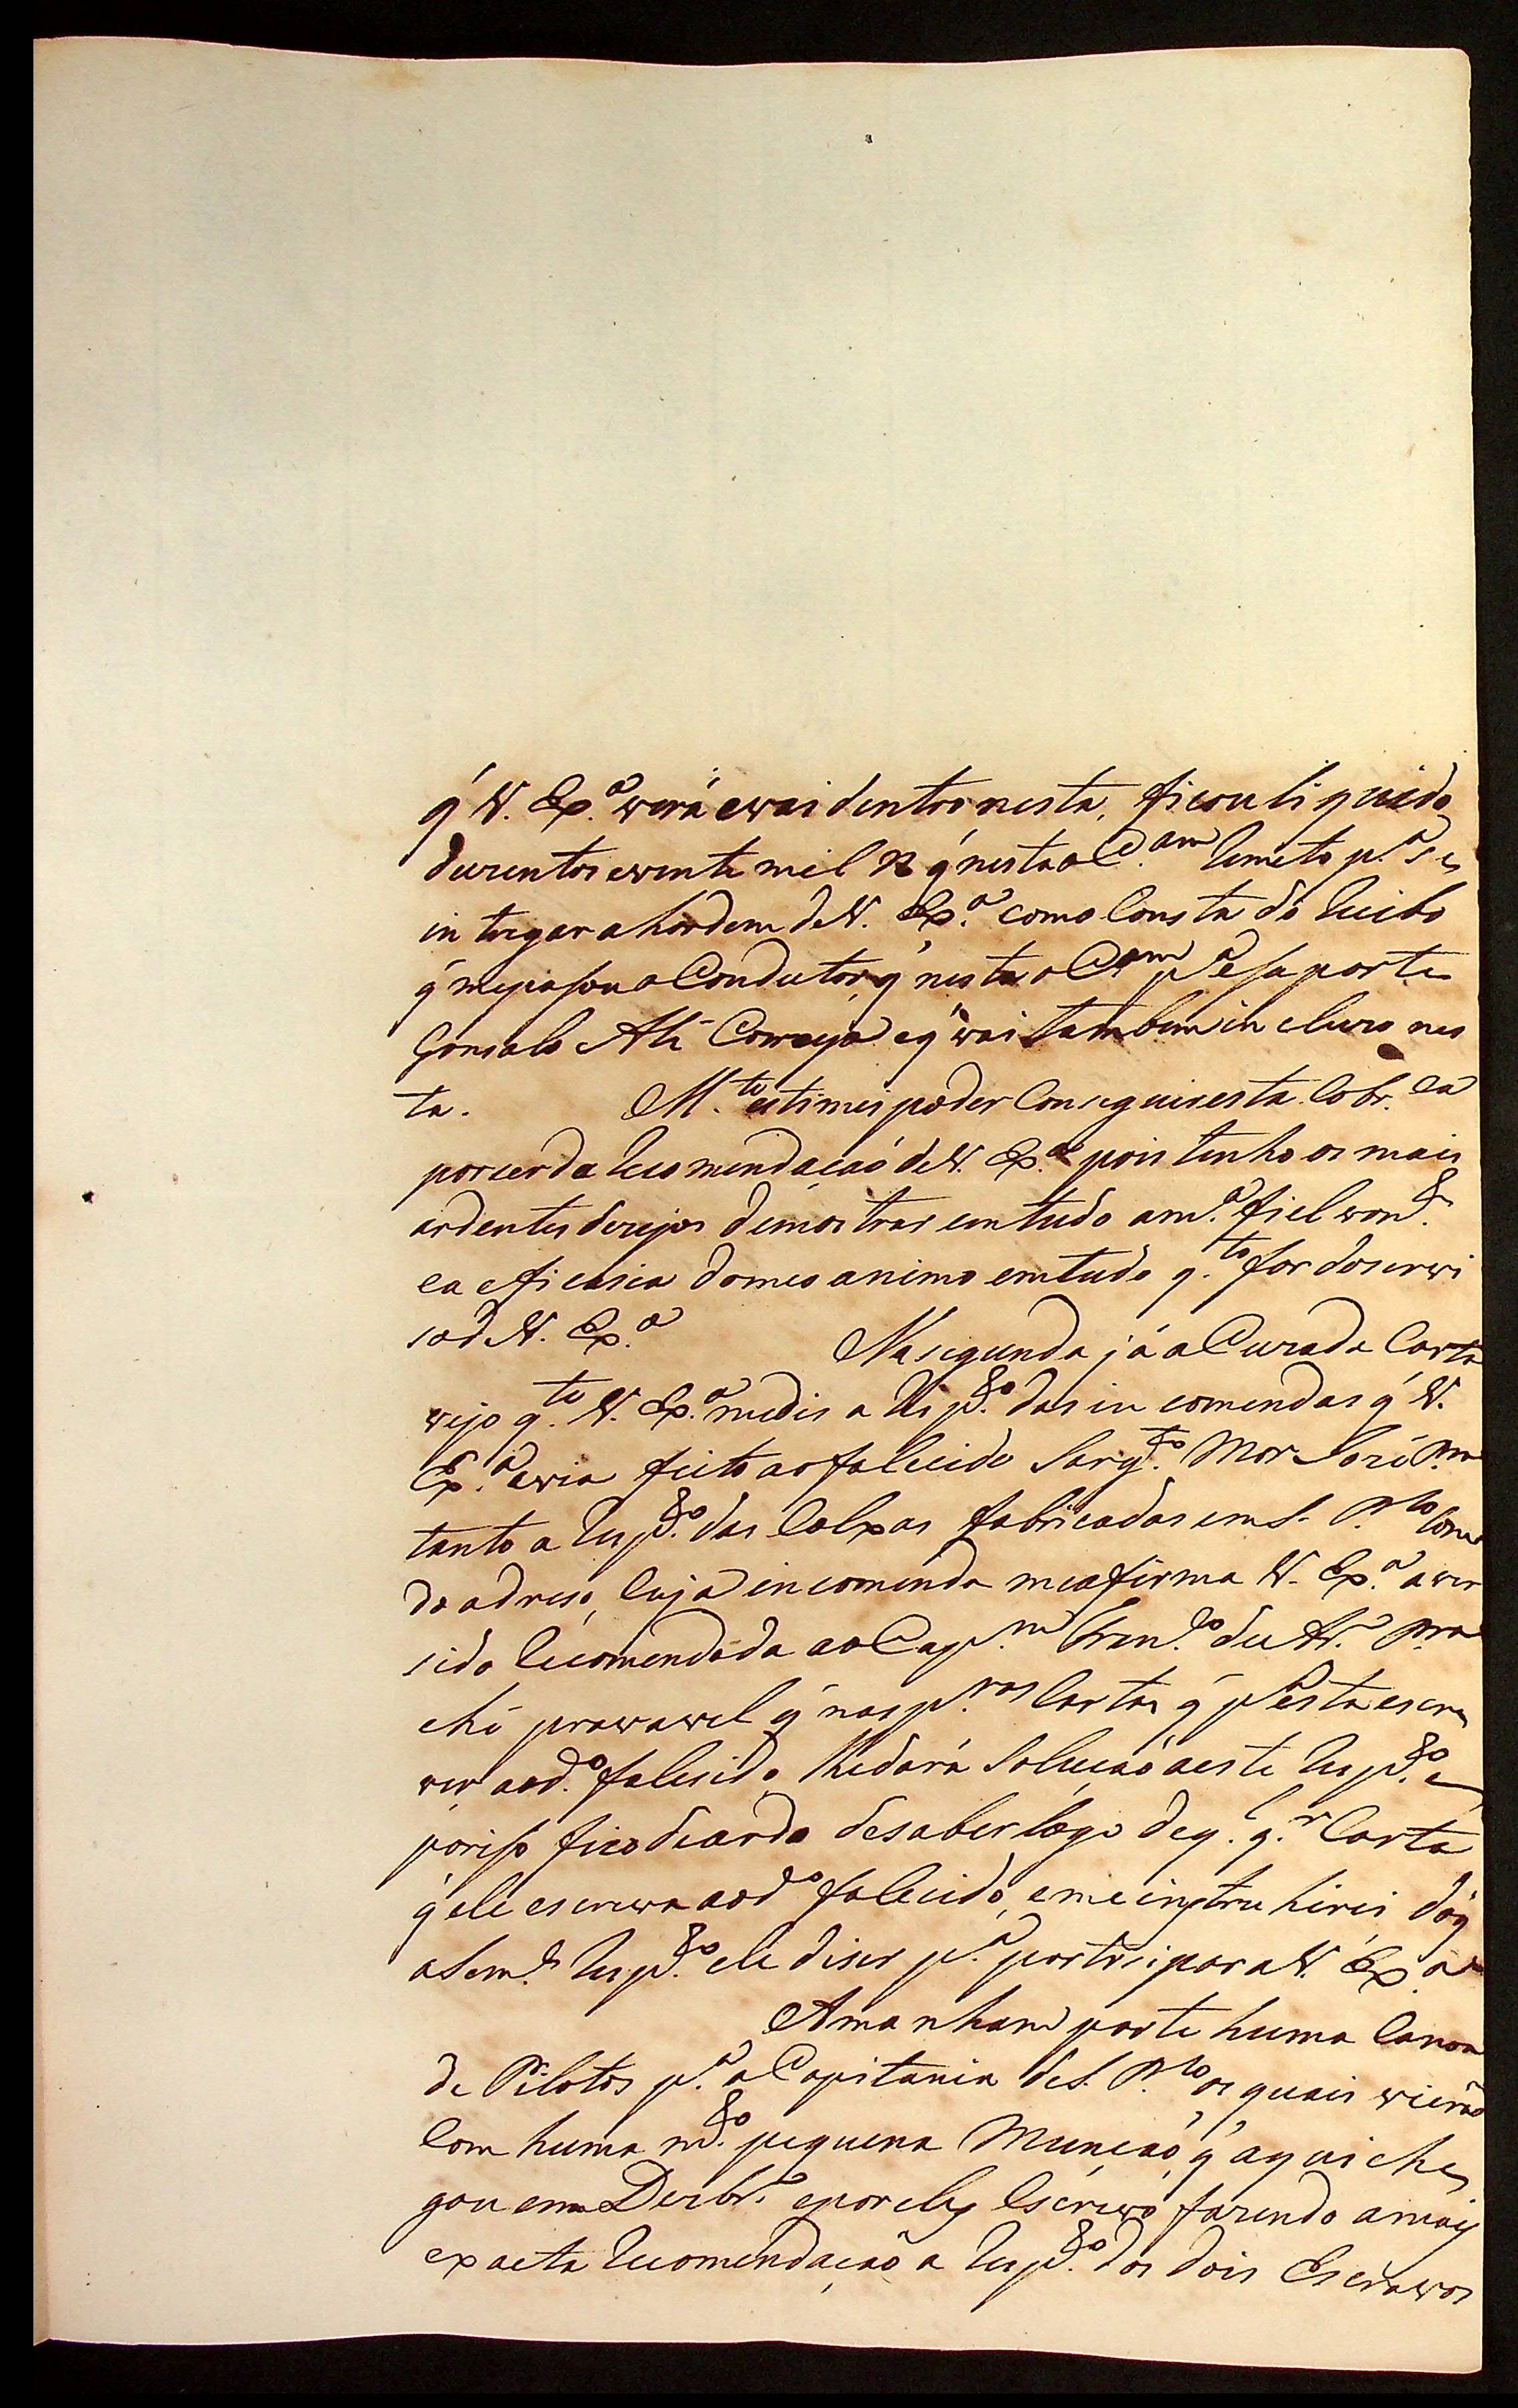 q̃ V. Exª verá evai dentro nesta, ficou liquido
duzentos evente mil rs q̃ nesta ocam Remeto pª se
in tregar ahordem de V. Exª como Consta do Recibo
q̃ mepasou o Condutor, q̃ nesta ocam pª esaparte
Gonsalo Corveya eq̃ vai tambem in cluzo nes
ta. Mto estimei poder Conseguir esta Cobrca
porser da Recomendação de V. Exª pois tenho os mais
ardentes dezejos demostrar em tudo amª fiel vonde
ea eficasia domeo animo emtudo qto for doservi
so de V. Exª Na segunda já aCuzada Carta
vejo qto V. Exª medis a Respto das in comendas q̃ V.
Exª avia feito aofalecido Sargto Mor José
tanto a Respto das Colxas fabricadas em S. Plo como
do adreso, Cuja encomenda meafirma V. Exª aver
sido Recomendada ao Capm
he provavel q̃ nas pras Cartas q̃ pª esta escre
ver aodo falecido, lhedará Solução aeste Respto e
poriso fico deacordo desaber logo de qqr Carta
q̃ ele escreva aodo falecido, eme instru hirei doq̃
aSeme Respto ele diser pª partisipar a V. Exª
Amanham parte huma Canoa
de Pilotos pª a Capitania de S. Plo os quais vierão
Com huma mto pequena Munção q̃ aqui che
gou em Dezbro epor eles Escrevo fazendo amais
exacta Recomendação a Respto dos dois Escravos